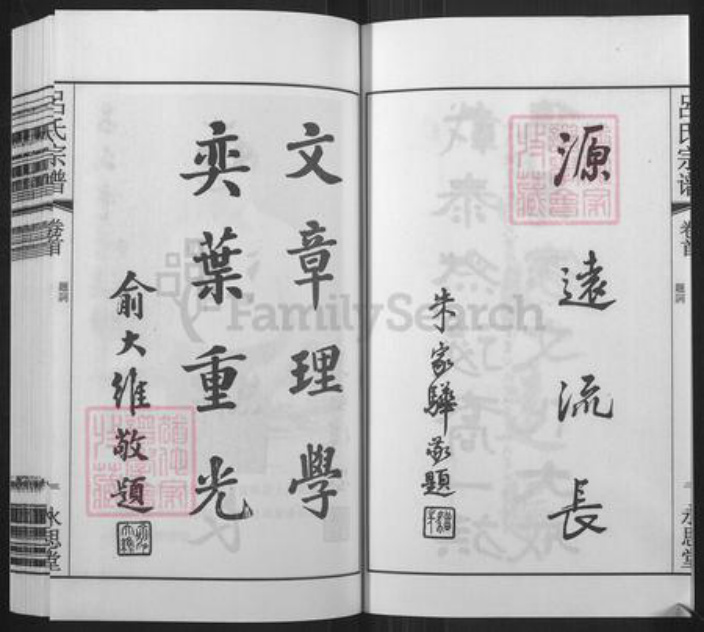 吕氏宗谱
卷首
題詞
永思堂
源遠流長
朱家驊敬題
文章理學
奕葉重光
俞大維敬題
吕氏宗譜
卷首
題詞
永思堂
FamilySearch